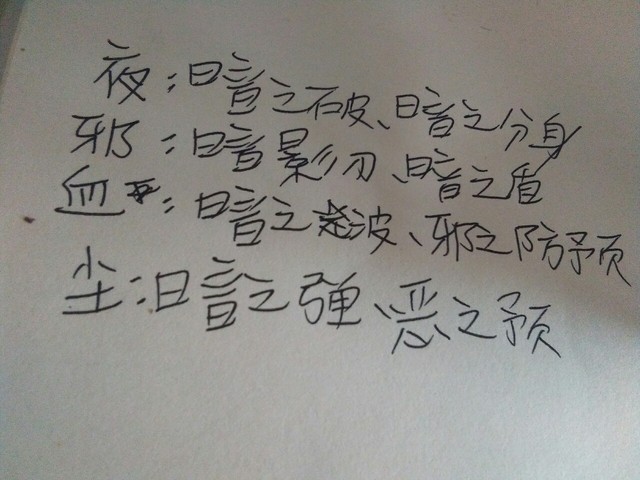 夜:暗之破、暗之分身
邪:暗影刃、暗之盾
血:暗之波、邪之防预
尘:暗之强、恶之预